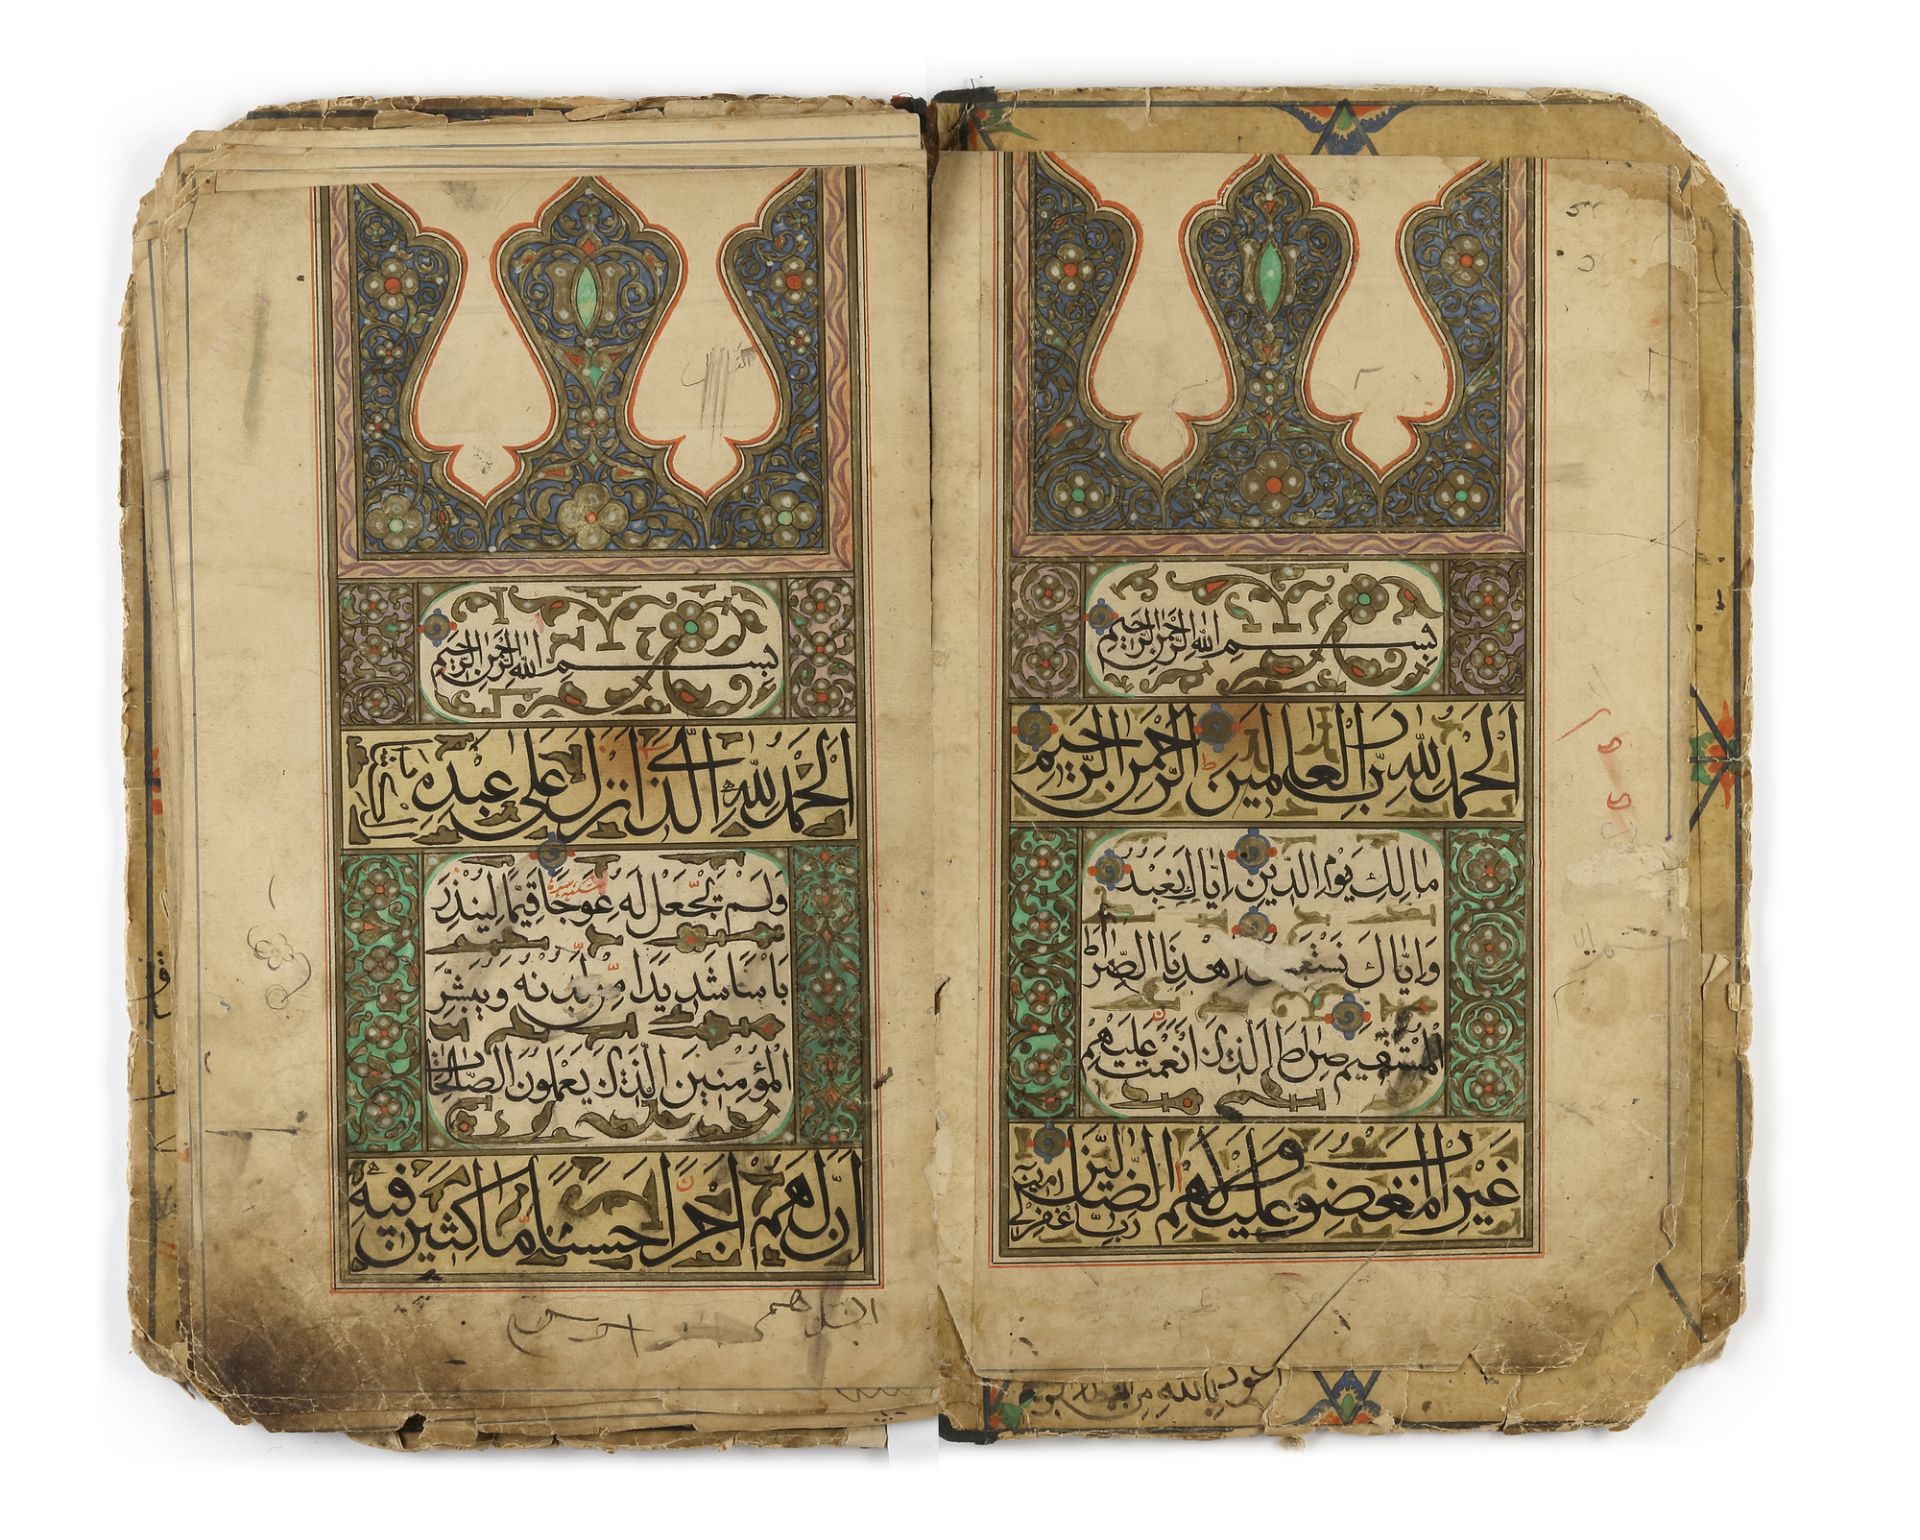 بِسْمِ اللهِ الرَّحْمٰنِ الرَّحِيْمِ
اَلْحَمْدُ لِلّٰهِ رَبِّ الْعَالَمِيْنَ الرَّحْمٰنِ الرَّحِيْمِ
مَالِكِ يَوْمِ الدِّيْنِ اِيَّاكَ نَعْبُدُ
وَاِيَّاكَ نَسْتَعِيْنُ اِهْدِنَا الصِّرَاطَ
الْمُسْتَقِيْمَ صِرَاطَ الَّذِيْنَ اَنْعَمْتَ عَلَيْهِمْ
غَيْرِ الْمَغْضُوْبِ عَلَيْهِمْ وَلَا الضَّالِّيْنَ اٰمِيْنَ رَبِّ اغْفِرْ لِيْ
اعوذ بالله من
بِسْمِ اللهِ الرَّحْمٰنِ الرَّحِيْمِ
اَلْحَمْدُ لِلّٰهِ الَّذِيْ اَنْزَلَ عَلٰى عَبْدِهِ الْكِتَابَ
وَلَمْ يَجْعَلْ لَهٗ عِوَجًا قَيِّمًا لِيُنْذِرَ
بَاْسًا شَدِيْدًا مِنْ لَدُنْهُ وَيُبَشِّرَ
الْمُؤْمِنِيْنَ الَّذِيْنَ يَعْمَلُوْنَ الصَّالِحَاتِ
اَنَّ لَهُمْ اَجْرًا حَسَنًا مَّاكِثِيْنَ فِيْهِ